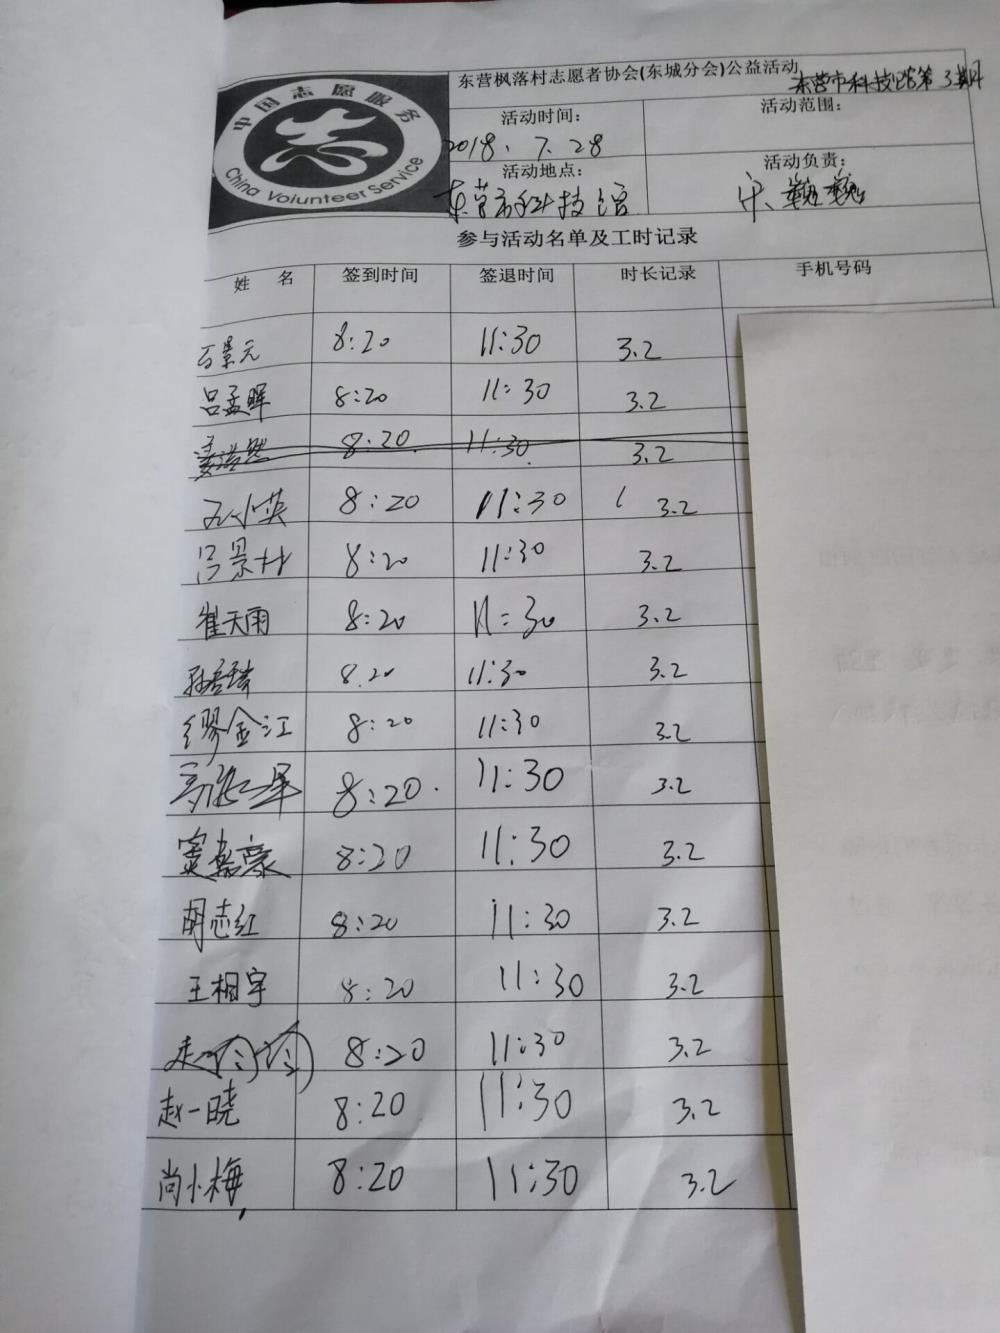 中国志愿服务
China Voiunteer Service
东营枫落村志愿者协会(东城分会)公益活动 东营市科技馆第3期
活动时间: 活动范围:
2018.7.28
活动地点: 活动负责:
东营市科技馆 宋巍巍
参与活动名单及工时记录
姓 名 签到时间 签退时间 时长记录 手机号码
石景元 8:20 11:30 3.2
吕孟晖 8:20 11:30 3.2
姜浩然 8:20 11:30 3.2
小英 8:20 11:30 3.2
吕景 8:20 11:30 3.2
崔天雨 8:20 11:30 3.2
孙 8.20 11:30 3.2
缪金江 8:20 11:30 3.2
8:20. 11:30 3.2
窦嘉豪 8:20 11:30 3.2
胡志红 8:20 11:30 3.2
王相宇 8:20 11:30 3.2
8:20 11:30 3.2
赵一晓 8:20 11:30 3.2
尚小梅 8:20 11:30 3.2